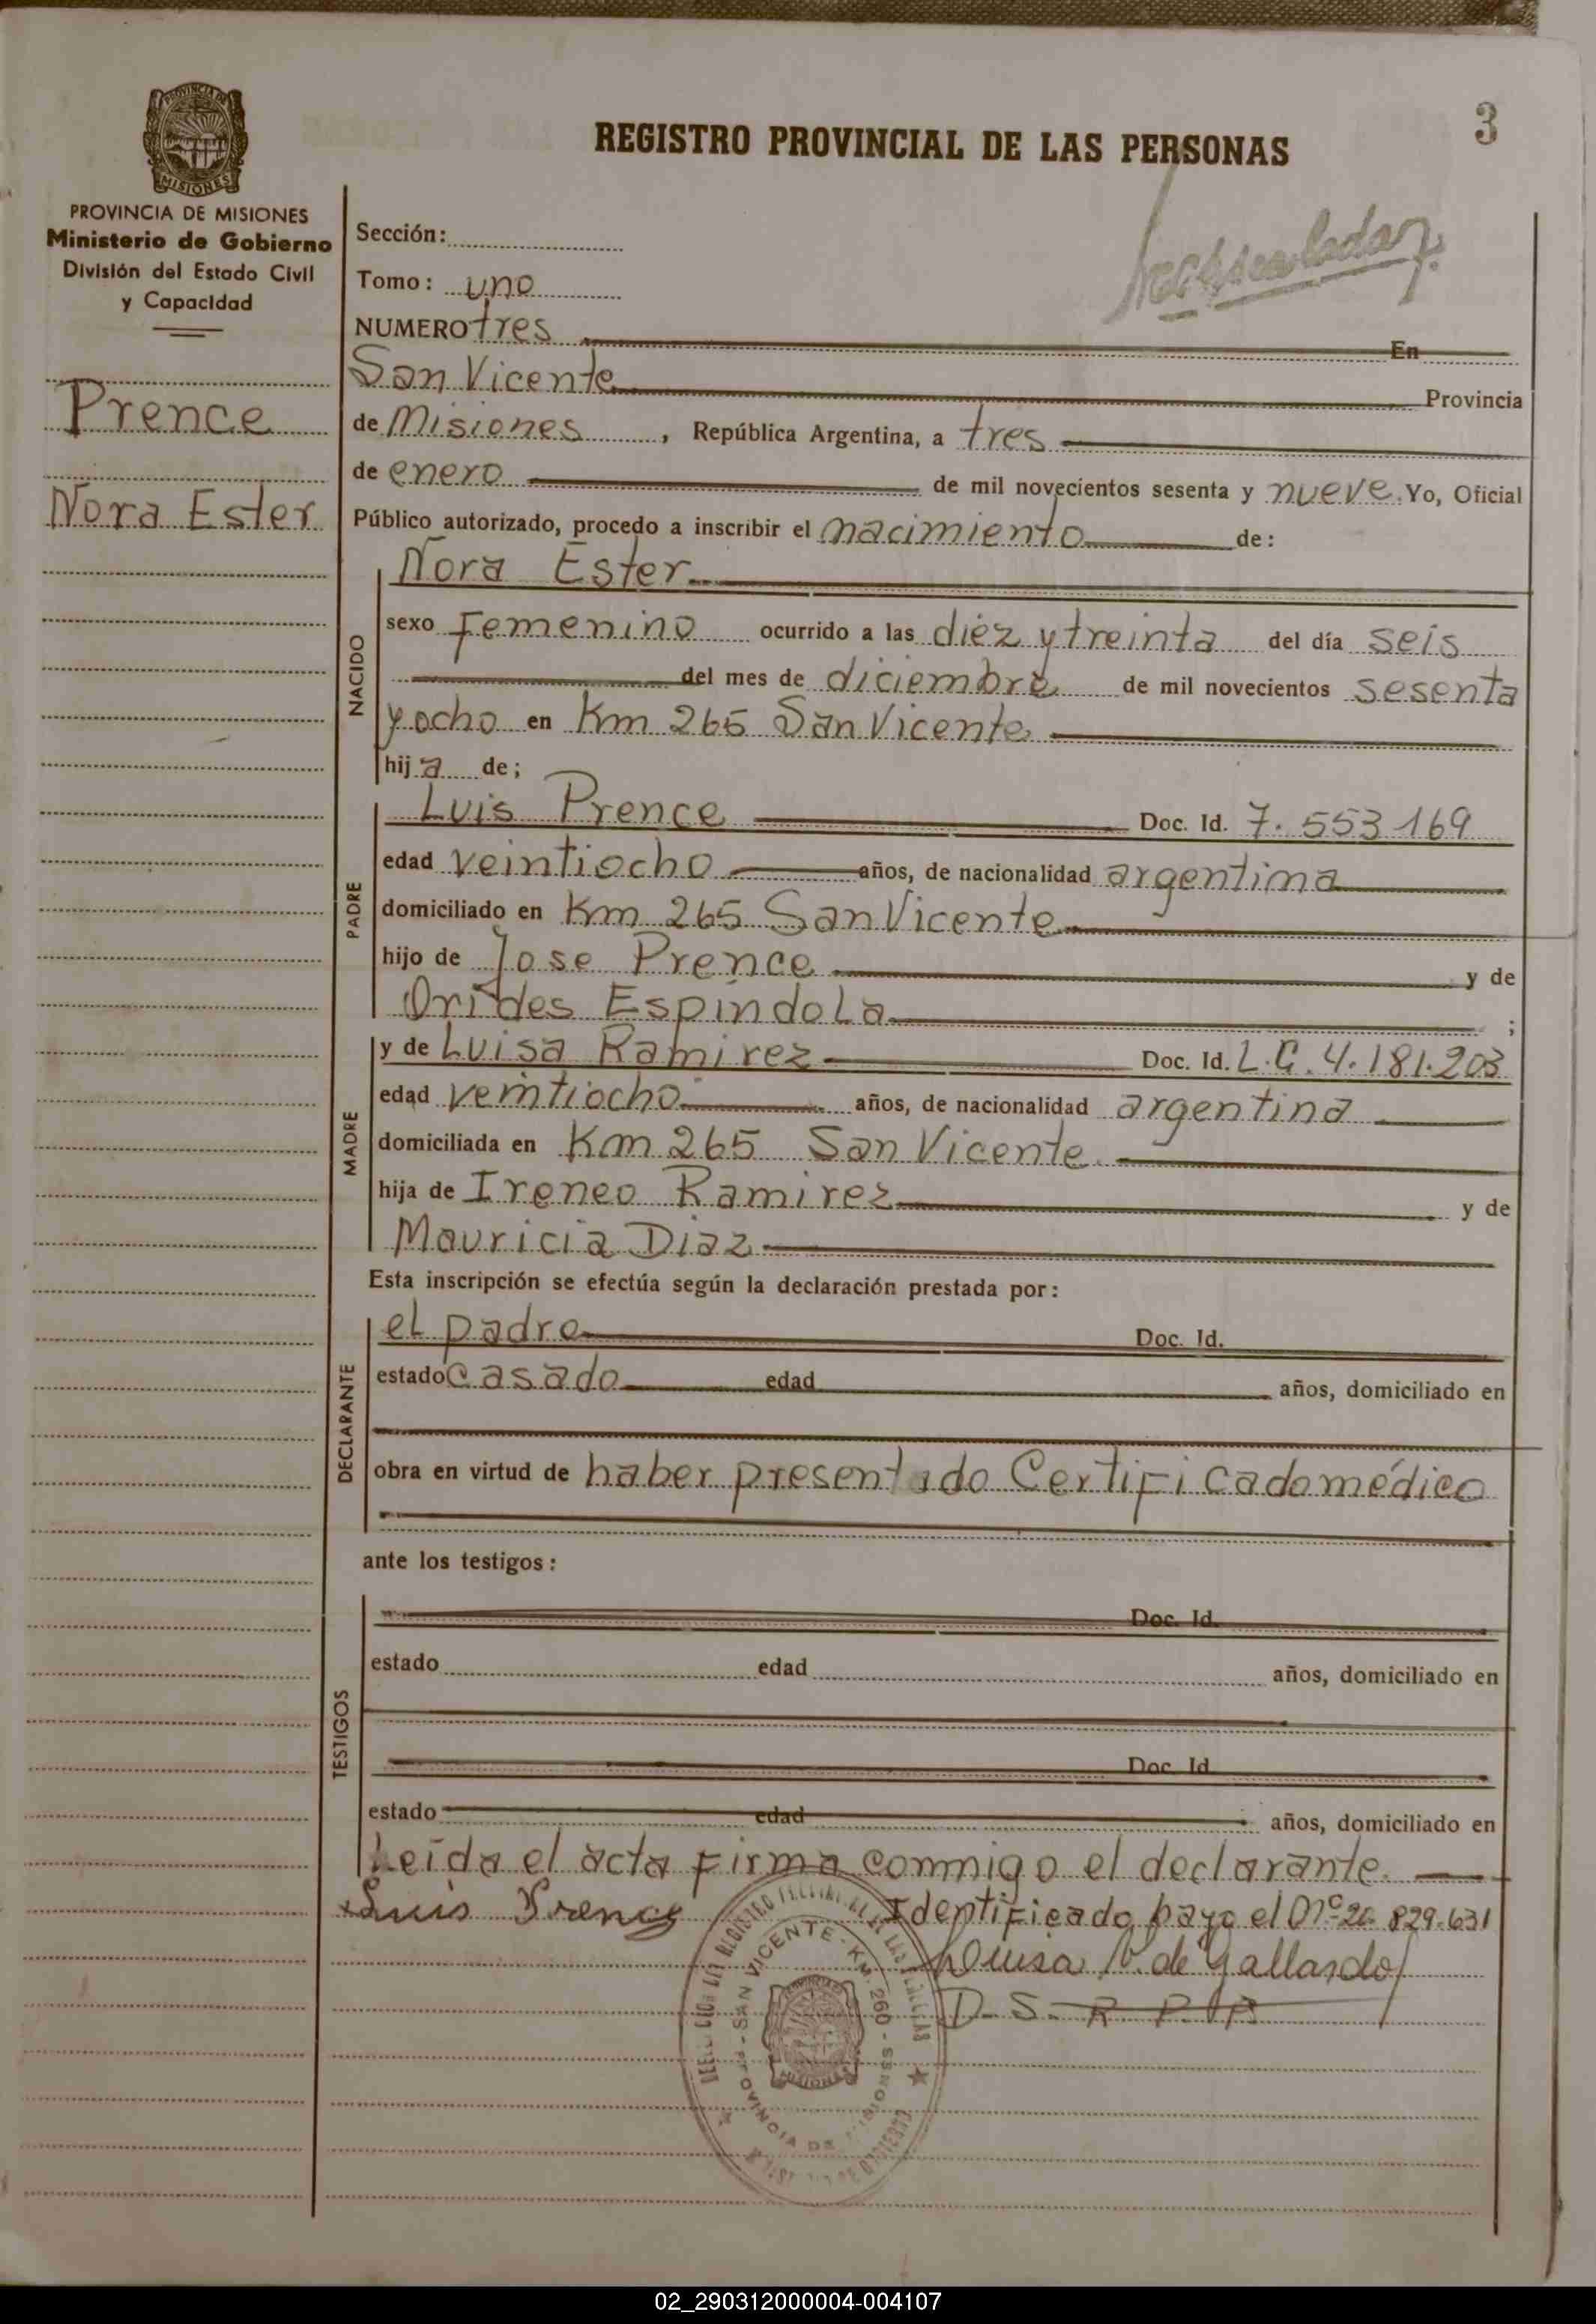 3
REGISTRO PROVINCIAL DE LAS PERSONAS
PROVINCIA DE MISIONES
Ministerio de Gobierno
División del Estado Civil
y Capacidad
Prence
Nora Ester
Sección:
Tomo: uno
NUMERO tres En
San Vicente Provincia
de Misiones, República Argentina, a tres
de enero de mil novecientos sesenta y nueve. Yo, Oficial
Público autorizado, procedo a inscribir el nacimiento de:
NACIDO
Nora Ester
sexo Femenino ocurrido a las diez y treinta del día seis
del mes de diciembre de mil novecientos sesenta
y ocho en Km 265 San Vicente
hija de;
PADRE
Luis Prence Doc. Id. 7.553169
edad veintiocho años, de nacionalidad argentina
domiciliado en Km 265 San Vicente
hijo de Jose Prence y de
Orides Espíndola ;
MADRE
y de Luisa Ramirez Doc. Id. L.C. 4.181.203
edad veintiocho años, de nacionalidad argentina
domiciliada en Km 265 San Vicente
hija de Ireneo Ramirez y de
Mauricia Diaz
Esta inscripción se efectúa según la declaración prestada por:
DECLARANTE
el padre Doc. Id.
estado casado edad años, domiciliado en
obra en virtud de haber presentado Certificado médico
ante los testigos:
TESTIGOS
Doc. Id.
estado edad años, domiciliado en
Doc. Id.
estado edad años, domiciliado en
Leída el acta firma conmigo el declarante.
Luis Prence Identificada bajo el Nº 20.829.631
Luisa V. de Gallardo
D. S. R. P. P.
SAN VICENTE - KM. 260 - PROVINCIA DE MISIONES
02_290312000004-004107